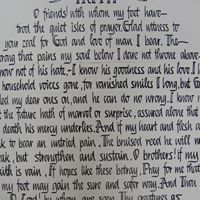 O friends! with whom my feet have
trod the quiet isles of prayer, Glad witness to
your zeal for God and love of man I bear. The
wrong that pains my soul below I dare not throne above.
know not of his hate - I know his goodness and his love I l
household voices gone, for vanished smiles I long, but G
led my dear ones on, and he can do no wrong. I know n
the future hath of marvel or surprise, assured alone that
death his mercy underlies. And if my heart and flesh a
ak to bear an untried pain, The bruised reed he will n
eak, but strengthen and sustain. O brothers! if my
aith is vain, If hopes like these betray, Pray for me that
my feet may gain the sure and safer way. And Thou
O Lord! by whom are seen Thy creatures as